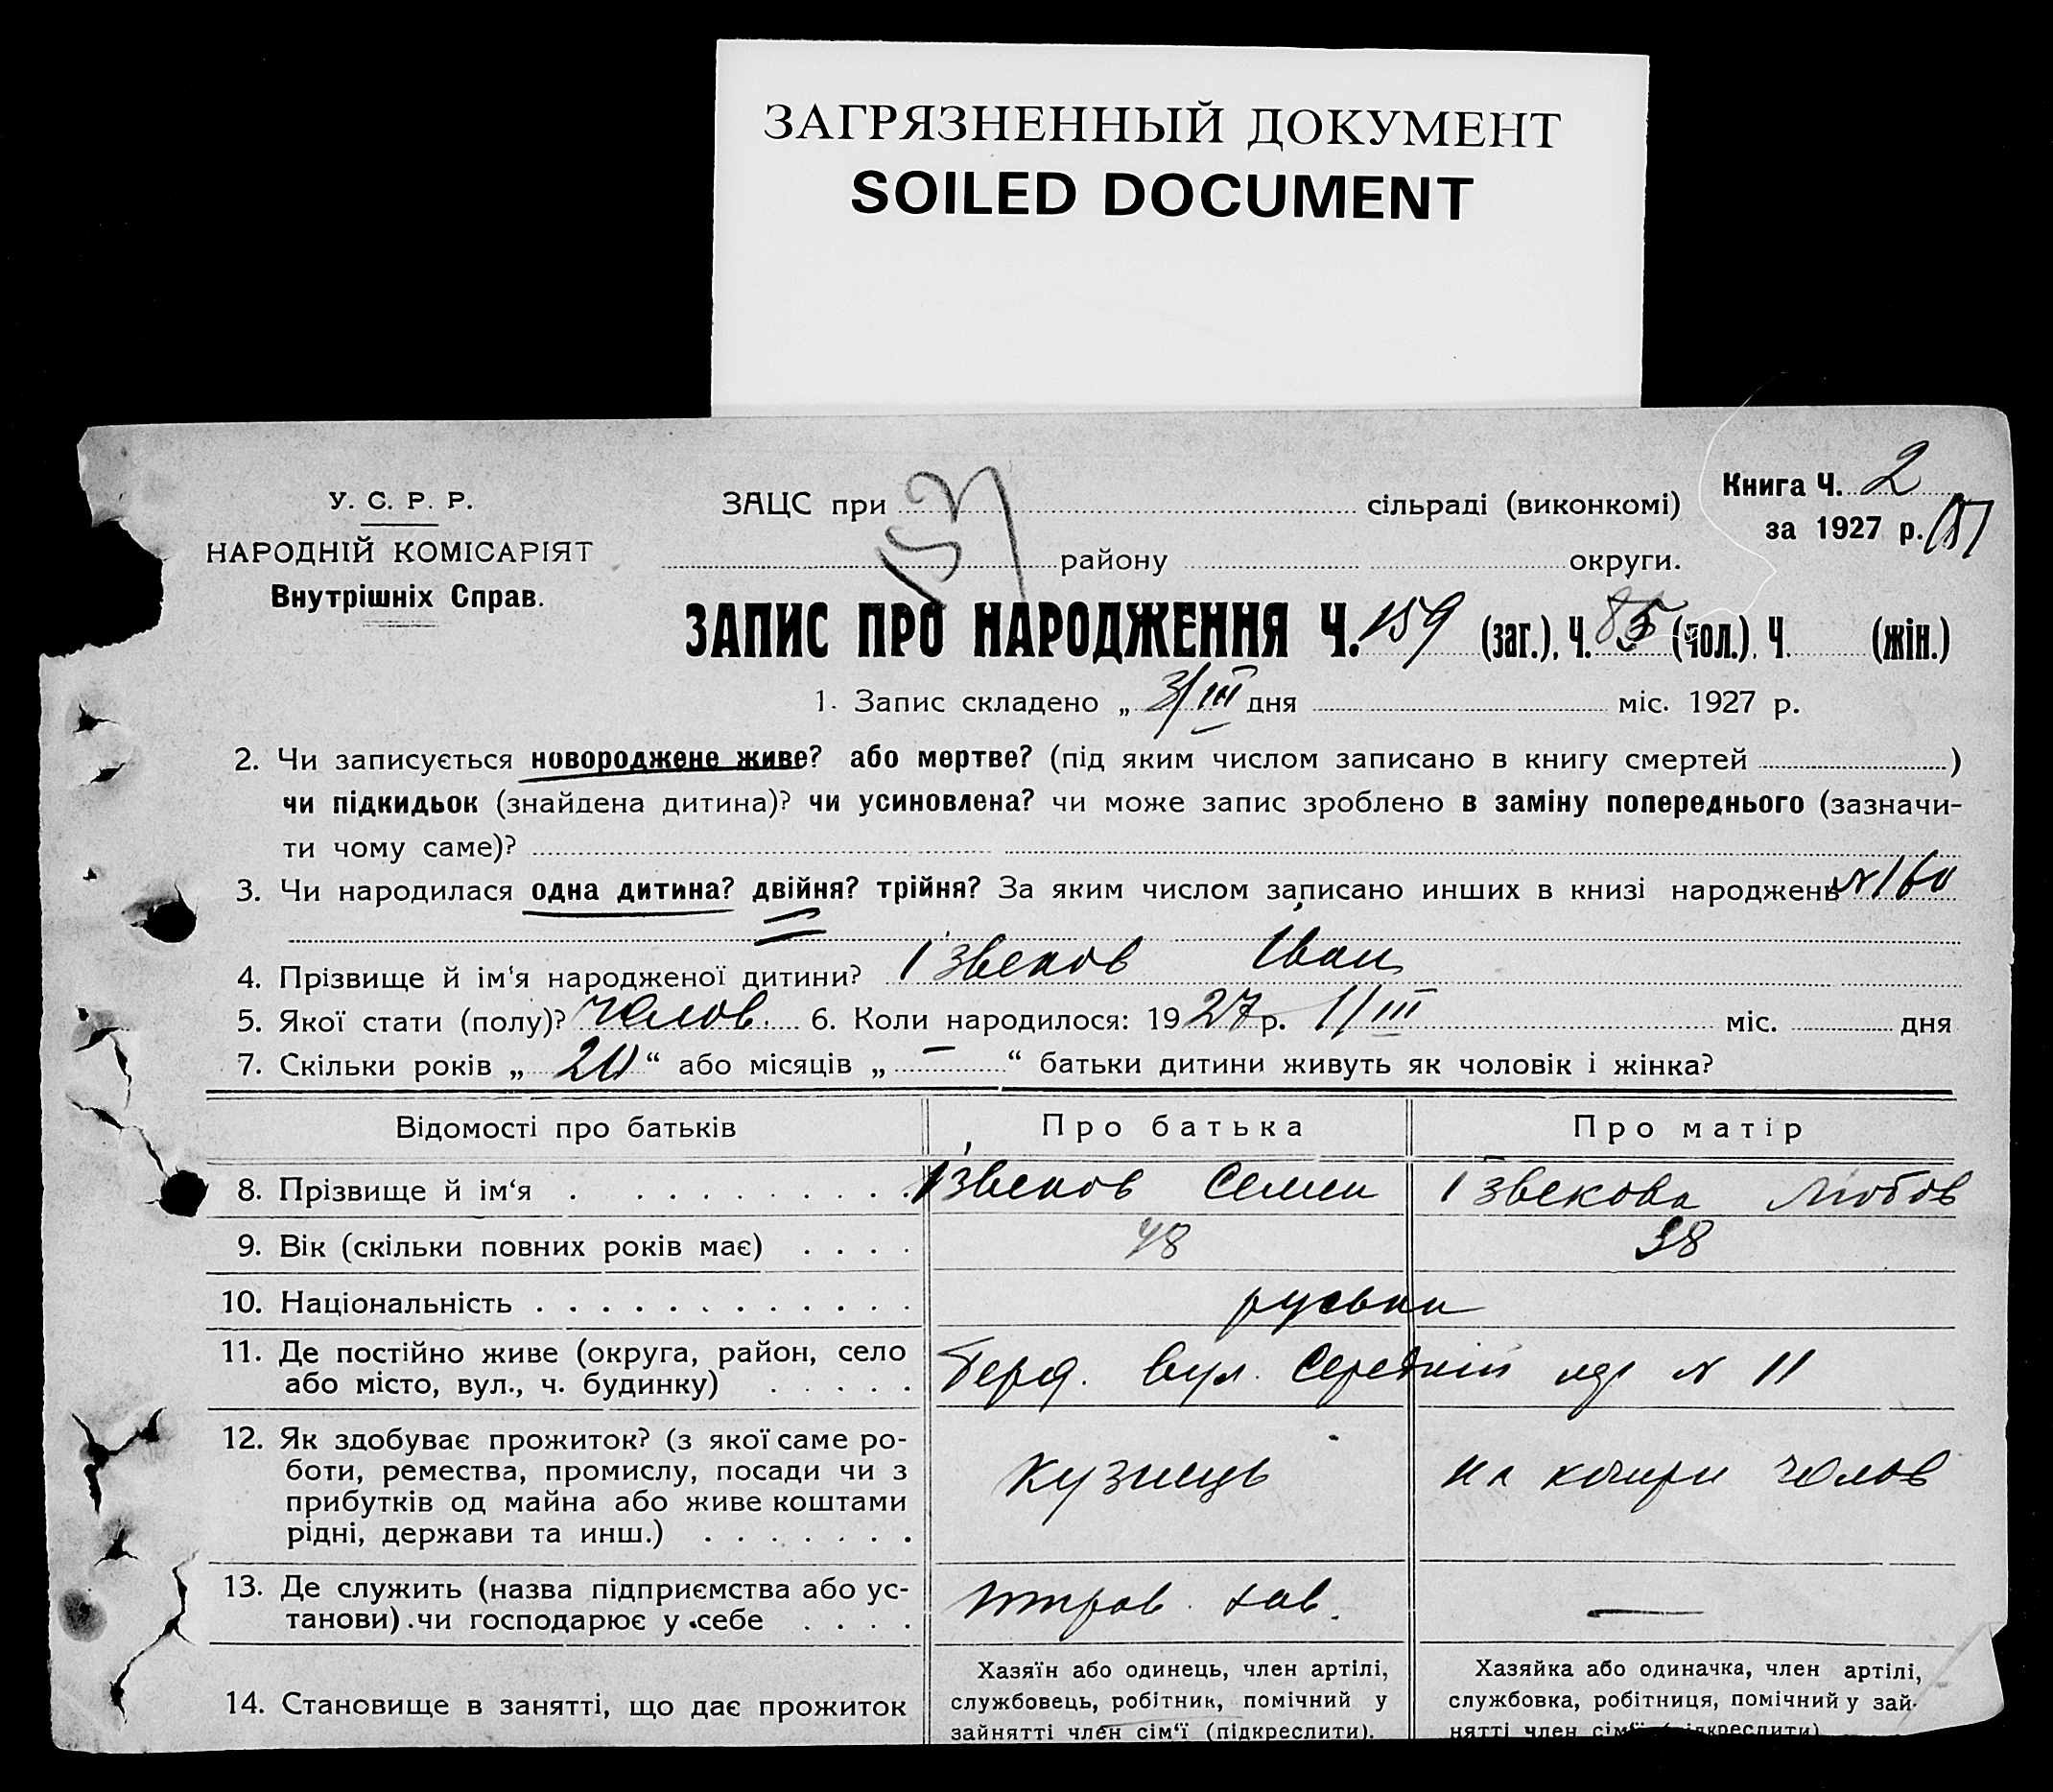 ЗАГРЯЗНЕННЫЙ ДОКУМЕНТ
SOILED DOCUMENT
Книга Ч. 2
за 1927 р.
У. С. Р. Р.
НАРОДНІЙ КОМІСАРІЯТ
Внутрішніх Справ.
ЗАЦС при сільраді (виконкомі)
району округи.
ЗАПИС ПРО НАРОДЖЕННЯ Ч. 159 (заг.), Ч. 85 (чол.), Ч. (жін.)
1. Запис складено „ 3/III дня міс. 1927 р.
2. Чи записується новороджене живе? або мертве? (під яким числом записано в книгу смертей )
чи підкидьок (знайдена дитина)? чи усиновлена? чи може запис зроблено в заміну попереднього (зазначи-
ти чому саме)?
3. Чи народилася одна дитина? двійня? трійня? За яким числом записано инших в книзі народжень № 160
4. Прізвище й ім'я народженої дитини? Ізвеков Іван
5. Якої стати (полу)? челов. 6. Коли народилося: 1927 р. 1/III міс. дня
7. Скільки років „ 20 “ або місяців „ — “ батьки дитини живуть як чоловік і жінка?
Відомості про батьків Про батька Про матір
8. Прізвище й ім'я Ізвеков Семен Ізвекова Любов
9. Вік (скільки повних років має) 48 38
10. Національність
11. Де постійно живе (округа, район, село
або місто, вул., ч. будинку) Берд. вул. Середній № 11
12. Як здобуває прожиток? (з якої саме ро-
боти, ремества, промислу, посади чи з
прибутків од майна або живе коштами
рідні, держави та инш.) кузнець на чолов
13. Де служить (назва підприємства або ус-
танови) чи господарює у себе зав. —
14. Становище в занятті, що дає прожиток
Хазяїн або одинець, член артілі,
службовець, робітник, помічний у
зайнятті член сім'ї (підкреслити).
Хазяйка або одиначка, член артілі,
службовка, робітниця, помічний у зай-
нятті член